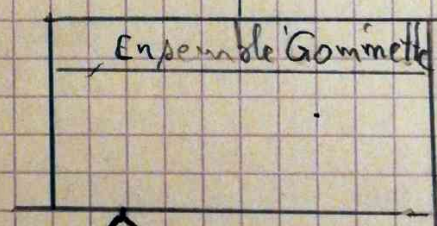 Ensemble Gommette